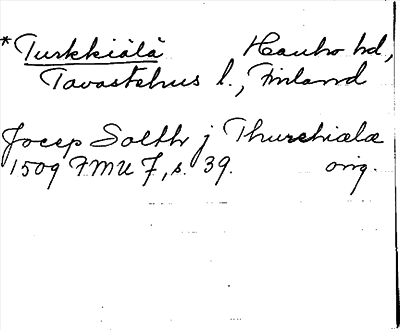 *Turkkiälä Hauho hd,
Tavastehus l., Finland
Jocep Solthr j Thurchiælæ
1509 FMU 7, s. 39. orig.